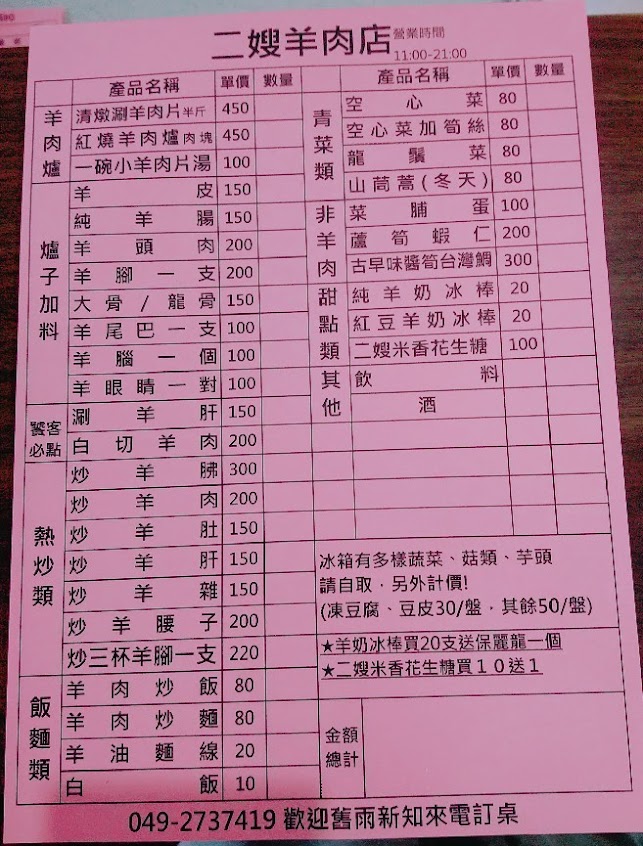 二嫂羊肉店 營業時間 11:00-21:00
產品名稱 單價 數量
羊肉爐
清燉涮羊肉片半斤 450
紅燒羊肉爐肉塊 450
一碗小羊肉片湯 100
爐子加料
羊皮 150
純羊腸 150
羊頭肉 200
羊腳一支 200
大骨/龍骨 150
羊尾巴一支 100
羊腦一個 100
羊眼睛一對 100
饕客必點
涮羊肝 150
白切羊肉 200
熱炒類
炒羊肺 300
炒羊肉 200
炒羊肚 150
炒羊肝 150
炒羊雜 150
炒羊腰子 200
炒三杯羊腳一支 220
飯麵類
羊肉炒飯 80
羊肉炒麵 80
羊油麵線 20
白飯 10
產品名稱 單價 數量
青菜類
空心菜 80
空心菜加筍絲 80
龍鬚菜 80
山茼蒿(冬天) 80
非羊肉
菜脯蛋 100
蘆筍蝦仁 200
古早味醬筍台灣鯛 300
甜點類
純羊奶冰棒 20
紅豆羊奶冰棒 20
二嫂米香花生糖 100
其他
飲料
酒
冰箱有多樣蔬菜、菇類、芋頭
請自取，另外計價!
(凍豆腐、豆皮30/盤，其餘50/盤)
★羊奶冰棒買20支送保麗龍一個
★二嫂米香花生糖買10送1
金額總計
049-2737419 歡迎舊雨新知來電訂桌